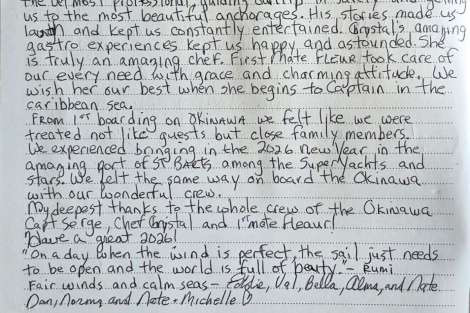 the utmost professional, guiding our trip in safety and getting
us to the most beautiful anchorages. His stories made us
laugh and kept us constantly entertained. Crystal's amazing
gastro experiences kept us happy and astounded. She
is truly an amazing chef. First mate Fleur took care of
our every need with grace and charming attitude. We
wish her our best when she begins to Captain in the
caribbean sea.
From 1st boarding on OKINAWA we felt like we were
treated not like guests but close family members.
We experienced bringing in the 2026 New Year in the
amazing port of ST BARTS among the Super Yachts and
stars. We felt the same way on board the Okinawa
with our wonderful crew.
My deepest thanks to the whole crew of the Okinawa
Capt Serge, Chef Crystal and 1st mate Fleur!
Have a great 2026!
"On a day when the wind is perfect, the sail just needs
to be open and the world is full of beauty." - Rumi
Fair winds and calm seas - Eddie, Val, Bella, Alma, and Nate
Dan, Norma, and Nate + Michelle